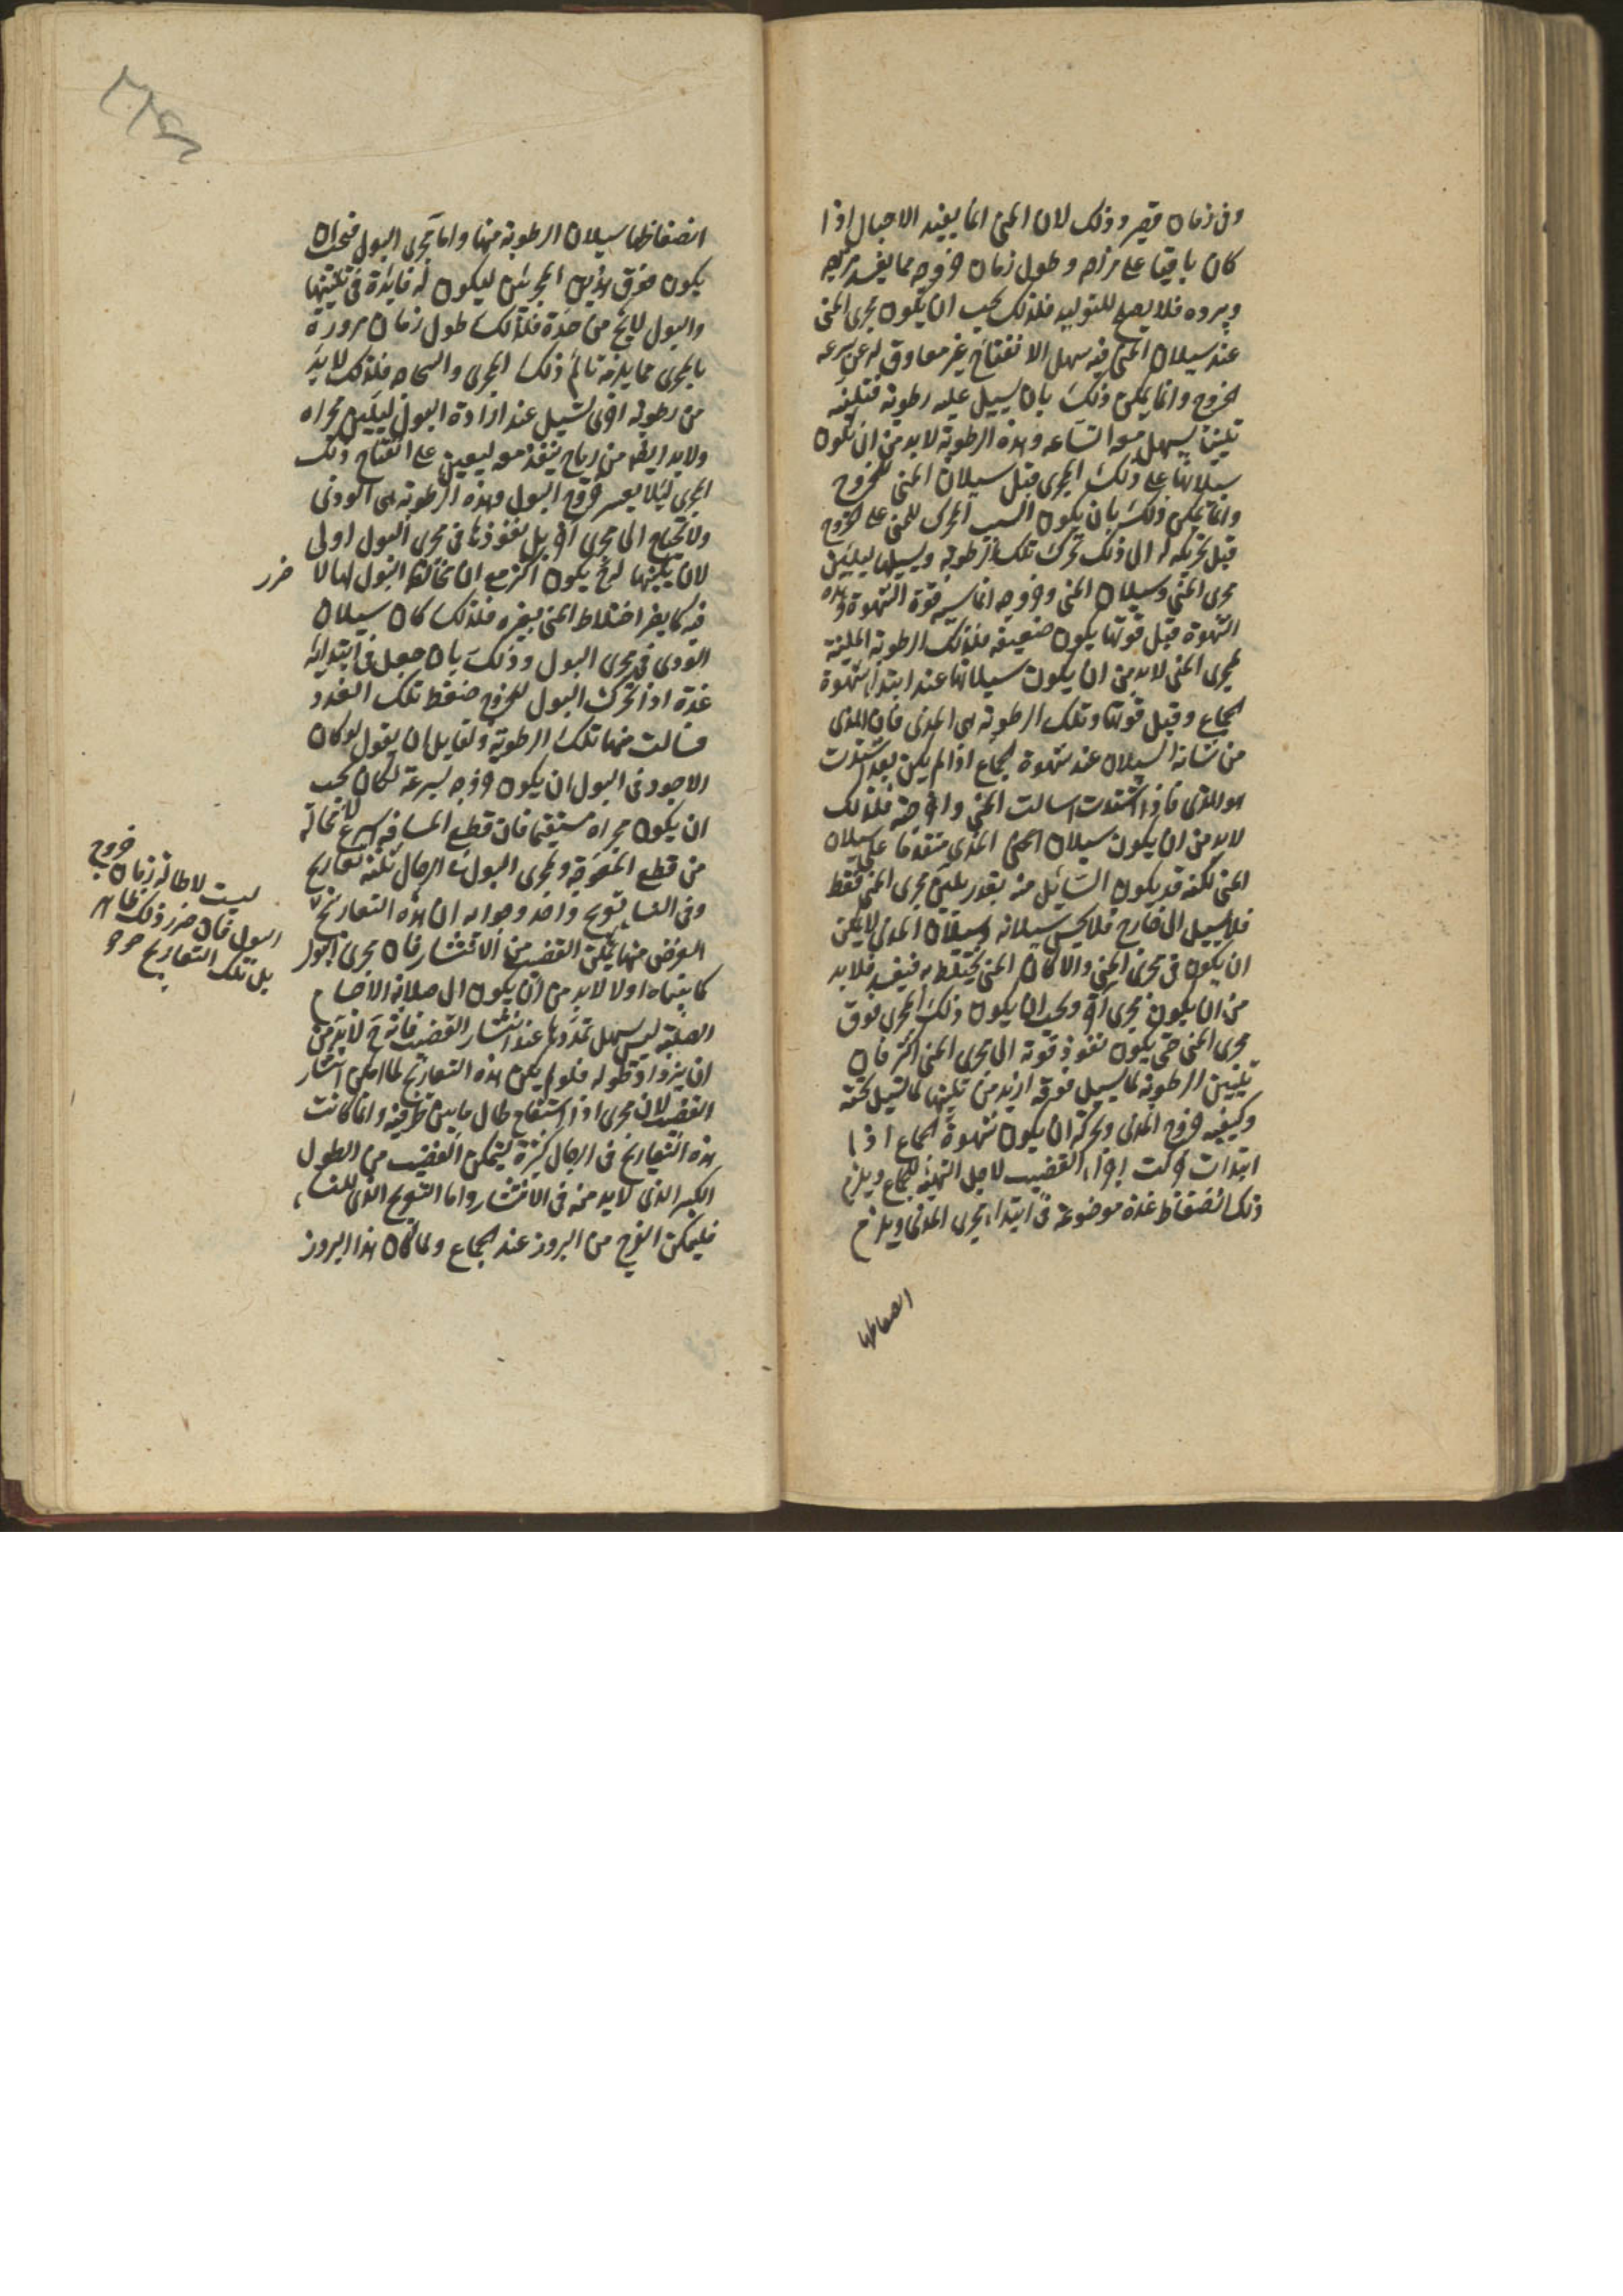 وفى زمان قصير وذلك لان المنى انما يفيد الاحبال اذا
كان باقيا على مزاجه وطول زمان خروجه مما يفسد مزاجه
ويبرده فلا يصلح للتوليد فلذلك يجب ان يكون مجرى المنى
عند سيلان المنى فيه سهل الانفتاح غير معاوق له عن سرعه
الخروج وانما يمكن ذلك بان يسيل عليه رطوبة تليّنه
تليينا يسهل معه اتساعه وهذه الرطوبة لابد من ان تكون
سيلانها على ذلك المجرى قبل سيلان المنى للخروج
وانما يمكن ذلك بان يكون السبب المحرك للمنى على الخروج
قبل تحريكه له الى ذلك تحرك تلك الرطوبة ويسيلها ليليّن
مجرى المنى وسيلان المنى وخروجه انما سببه قوة الشهوة وهذه
الشهوة قبل قوتها يكون ضعيفة فلذلك الرطوبة المليّنة
لمجرى المنى لابد من ان يكون سيلانها عند ابتداء شهوة
الجماع وقبل قوتها وتلك الرطوبة هى المذى فان المذى
من شانه السيلان عند شهوة الجماع اذا لم يكن بعد اشتدت
هو المذى فاذا اشتدت اسالت المنى واخرجته فلذلك
لابد من ان يكون سيلان المذى متقدما على سيلان
المنى لكنه قد يكون السائل منه بقدر يليّن مجرى المنى فقط
فلا يسيل الى خارج فلا يحس سيلانه وسيلان المذى لا يمكن
ان يكون فى مجرى المنى والا كان المنى يختلط به فيفسد فلابد
من ان يكون فى مجرى اخر ويجب ان يكون ذلك المجرى فوق
مجرى المنى حتى يكون نفوذ قوته الى مجرى المنى اكثر فان
تليين الرطوبة لما يسيل فوقه ازيد من تليينها لما تسيل تحته
وكيفيه خروج المذى وتحركه ان يكون شهوة الجماع اذا
ابتدات حركت اجزاء القضيب لاجل التهيئه للجماع ويلزم
ذلك انضغاط غدة موضوعة فى ابتداء مجرى المذى ويلزم
انضغاطها
انضغاطها سيلان الرطوبة منها واما مجرى البول فيجب ان
يكون فوق هذين المجريين ليكون له فايدة فى تليينها
والبول لا يخ من حدة فلذلك طول زمان مروره
بالمجرى مما يلزمه تالم ذلك المجرى فلذلك لابد
من رطوبة اخرى تسيل عند ارادة البول ليليّن مجراه
ولابد ايضا من رياح ينفذ معه ليعين على انفتاح ذلك
المجرى لئلا يعسر خروج البول وهذه الرطوبة هى الودى
ولا تحتاج الى مجرى اخر بل نفوذها فى مجرى البول اولى
لان تليينها له ح يكون اكثر مع ان مخالطة البول لها لا ضرر
فيه كما يضر اختلاط المنى بغيره فلذلك كان سيلان
الودى فى مجرى البول وذلك بان جعل فى ابتدائه
غدة اذا تحرك البول للخروج ضغط تلك الغدد
فسالت منها تلك الرطوبة ولقايل ان يقول لو كان
الاجود فى البول ان يكون خروجه بسرعة لكان يجب
ان يكون مجراه مستقيما فان قطع المسافه اسرع لا محالة
من قطع المعوجة ومجرى البول فى الرجال ثلثه تعاريج
وفى النسا تعويج واحد وجوابه ان هذه التعاريج
الغرض منها تمكن القضيب من الانتشار فان مجرى البول
كما بيناه اولا لابد من ان يكون الى صلابة الاجسام
الصلبة ليس يسهل تمددها عند انتشار القضيب فانه ح لابد من
ان يزداد طوله فلو لم يكن هذه التعاريج لما امكن انتشار
القضيب لان مجرى اذا استقام طال ما بين طرفيه وانما كانت
هذه التعاريج فى الرجال كثيرة ليتمكن القضيب من الطول
الكبير الذى لابد منه فى الانتشار واما التعويج الذى للنساء
فليمكن الفرج من البروز عند الجماع ولما كان هذا البروز
ليست لاطالة زمان خروج
البول فان ضرر ذلك ظاهر
بل تلك التعاريج